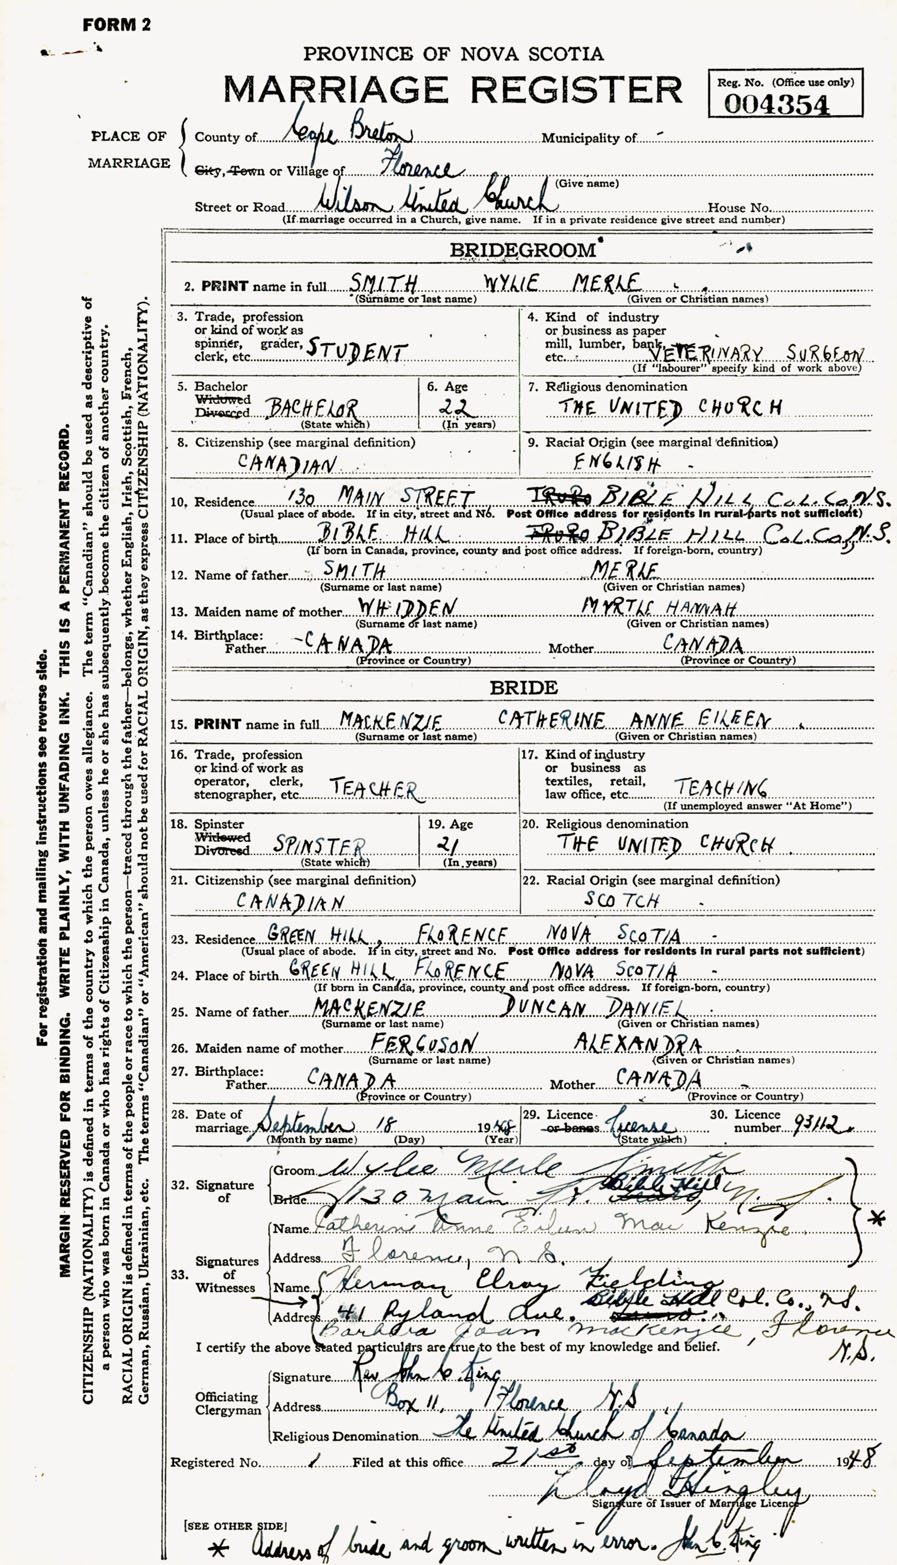 FORM 2
PROVINCE OF NOVA SCOTIA
MARRIAGE REGISTER
Reg. No. (Office use only)
004354
PLACE OF MARRIAGE
County of Cape Breton Municipality of -
City, Town or Village of Florence
(Give name)
Street or Road Wilson United Church House No.
(If marriage occurred in a Church, give name. If in a private residence give street and number)
BRIDEGROOM
2. PRINT name in full SMITH WYLIE MERLE
(Surname or last name) (Given or Christian names)
3. Trade, profession or kind of work as spinner, grader, clerk, etc. STUDENT
4. Kind of industry or business as paper mill, lumber, bank, etc. VETERINARY SURGEON
(If "labourer" specify kind of work above)
5. Bachelor Widowed Divorced BACHELOR
(State which)
6. Age 22
(In years)
7. Religious denomination THE UNITED CHURCH
8. Citizenship (see marginal definition) CANADIAN
9. Racial Origin (see marginal definition) ENGLISH -
10. Residence 130 MAIN STREET TRURO BIBLE HILL, Col. Co. N.S.
(Usual place of abode. If in city, street and No. Post Office address for residents in rural parts not sufficient)
11. Place of birth BIBLE HILL TRURO BIBLE HILL Col. Co., N.S.
(If born in Canada, province, county and post office address. If foreign-born, country)
12. Name of father SMITH MERLE
(Surname or last name) (Given or Christian names)
13. Maiden name of mother WHIDDEN MYRTLE HANNAH
(Surname or last name) (Given or Christian names)
14. Birthplace: Father CANADA Mother CANADA
(Province or Country) (Province or Country)
BRIDE
15. PRINT name in full MACKENZIE CATHERINE ANNE EILEEN
(Surname or last name) (Given or Christian names)
16. Trade, profession or kind of work as operator, clerk, stenographer, etc. TEACHER
17. Kind of industry or business as textiles, retail, law office, etc. TEACHING
(If unemployed answer "At Home")
18. Spinster Widowed Divorced SPINSTER
(State which)
19. Age 21
(In years)
20. Religious denomination THE UNITED CHURCH
21. Citizenship (see marginal definition) CANADIAN
22. Racial Origin (see marginal definition) SCOTCH
23. Residence GREEN HILL, FLORENCE NOVA SCOTIA -
(Usual place of abode. If in city, street and No. Post Office address for residents in rural parts not sufficient)
24. Place of birth GREEN HILL FLORENCE NOVA SCOTIA -
(If born in Canada, province, county and post office address. If foreign-born, country)
25. Name of father MACKENZIE DUNCAN DANIEL
(Surname or last name) (Given or Christian names)
26. Maiden name of mother FERGUSON ALEXANDRA
(Surname or last name) (Given or Christian names)
27. Birthplace: Father CANADA Mother CANADA -
(Province or Country) (Province or Country)
28. Date of marriage September 18 1948
(Month by name) (Day) (Year)
29. Licence or banns License
(State which)
30. Licence number 93112
32. Signature of
Groom Wylie Merle Smith
Bride 130 Main St. Bible Hill N.S.
Name Catherine Anne Eileen MacKenzie
Address Florence, N.S.
*
33. Signatures of Witnesses
Name Herman Elroy Fielding
Address 41 Ryland Ave. Bible Hill Col. Co., N.S.
Barbara Joan MacKenzie, Florence N.S.
I certify the above stated particulars are true to the best of my knowledge and belief.
Officiating Clergyman
Signature Rev. John C. King
Address Box 11, Florence N.S.
Religious Denomination The United Church of Canada
Registered No. 1 Filed at this office 21st day of September 1948
Lloyd Hingley
Signature of Issuer of Marriage Licence
[SEE OTHER SIDE]
* Address of bride and groom written in error. John C. King
For registration and mailing instructions see reverse side.
MARGIN RESERVED FOR BINDING. WRITE PLAINLY, WITH UNFADING INK. THIS IS A PERMANENT RECORD.
CITIZENSHIP (NATIONALITY) is defined in terms of the country to which the person owes allegiance. The term "Canadian" should be used as descriptive of
a person who was born in Canada or who has rights of Citizenship in Canada, unless he or she has subsequently become the citizen of another country.
RACIAL ORIGIN is defined in terms of the people or race to which the person—traced through the father—belongs, whether English, Irish, Scottish, French,
German, Russian, Ukrainian, etc. The terms "Canadian" or "American" should not be used for RACIAL ORIGIN, as they express CITIZENSHIP (NATIONALITY).